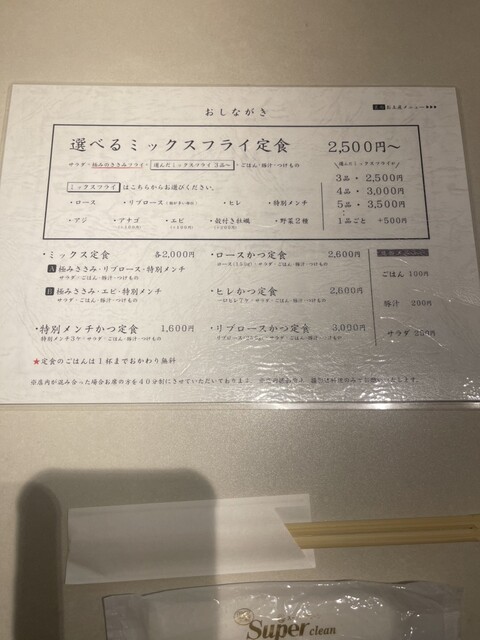 おしながき
選べるミックスフライ定食 2,500円〜
サラダ・極みのささみフライ・選んだミックスフライ3品〜・ごはん・豚汁・つけもの
ミックスフライ はこちらからお選びください。
・ロース ・リブロース ・ヒレ ・特別メンチ
・アジ ・アナゴ ・エビ ・殻付き牡蠣 ・野菜2種
3品・2,500円
4品・3,000円
5品・3,500円
1品ごと +500円
・ミックス定食 各2,000円
A 極みささみ・リブロース・特別メンチ
サラダ・ごはん・豚汁・つけもの
B 極みささみ・エビ・特別メンチ
サラダ・ごはん・豚汁・つけもの
・特別メンチかつ定食 1,600円
特別メンチ3ケ・サラダ・ごはん・豚汁・つけもの
・ロースかつ定食 2,600円
サラダ・ごはん・豚汁・つけもの
・ヒレかつ定食 2,600円
サラダ・ごはん・豚汁・つけもの
・リブロースかつ定食 3,000円
ごはん 100円
豚汁 200円
サラダ 200円
★定食のごはんは1杯までおかわり無料
※店内が込み合った場合お席の方を40分制にさせていただいております。
Super clean